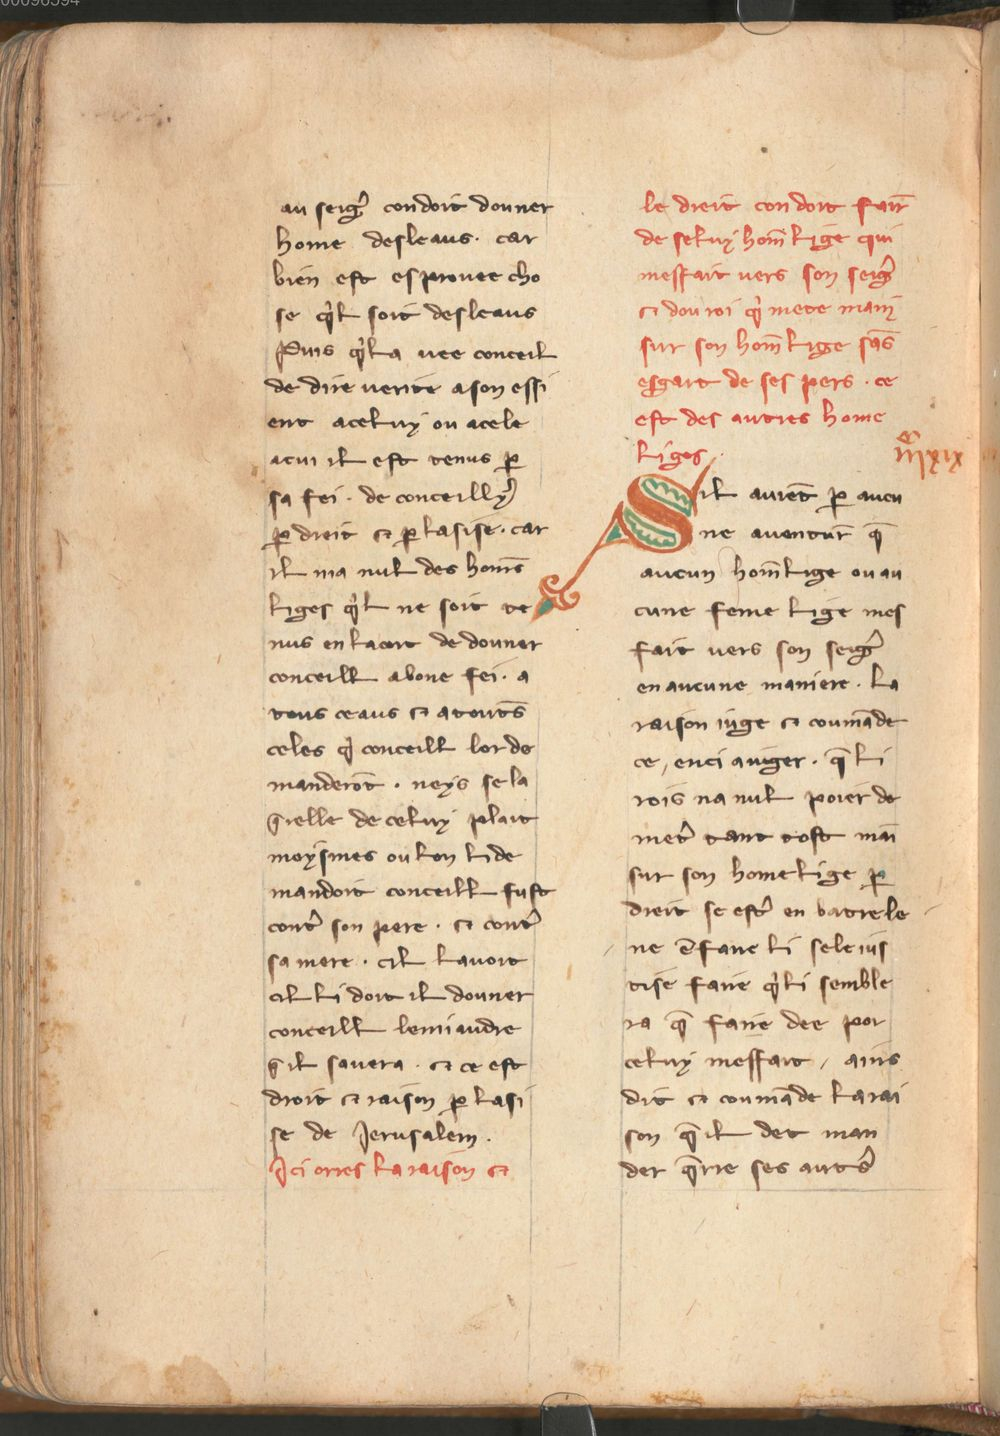 au seigr̃ condoit donner
home desleaus. car
bien est esprouee cho
se q̓l soit desleaus
Puis q̓l a uee conceil
de dire uerite a son essi
ent a celuy ou a cele
a cui il est tenus p̱
sa fei. de conceillyr̃
p̱ dreit ⁊ p̱ lasise. car
il nia nul des homẽs
liges q̓l ne soit te
nus en lacort de donner
conceill abone fei. a
tous ceaus ⁊ a toutẽs
celes q̓ conceill lor de
manderõt. neys se la
q̃relle de celuy plait
moyſmes ou lon li de
mandoit conceill fust
contr̃ son pere. ⁊ contr̃
sa mere. cil lauoit
cil li doit il donner
conceill lemiaudre
q̃ il sauera. ⁊ ce est
droit ⁊ raison p̱ lasi
se de Jerusalem.
Ici orres la raison ⁊
le dreit con doit fair̃
de seluy hom̃ lige qui
meffait uers son seigr̃
⁊ dou roi q̓ mete main
sur son hom̃ lige sãs
esgart de ses pers. ce
est des autres home
liges.
Sil auient p̱ aucu
ne auentur̃ q̃
aucun hom̃ lige ou au
cune feme lige mes
fait uers son seigr̃
en aucune maniere. la
raison iuge ⁊ coumãde
ce, enci auiger. q̃ li
rois na nul poier de
metr̃ tant tost mai
sur son home lige p̱
dreit se estr̃ en batre le
ne faire li sele ius
tise faire q̓ li semble
ra q̃ faire dee por
celuy meffait, ains
dit ⁊ coumãde la rai
son q̃ il det man
der q̃rre ses autr̃s